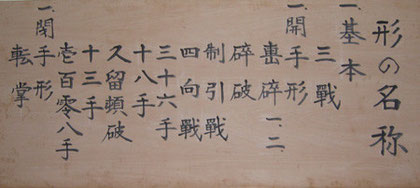 形の名称
一、基本
三戰
一、開手形
一、二
碎破
制引戰
四向戰
三十六手
十八手
久留頓破
十三手
壱百零八手
一、閉手形
転掌